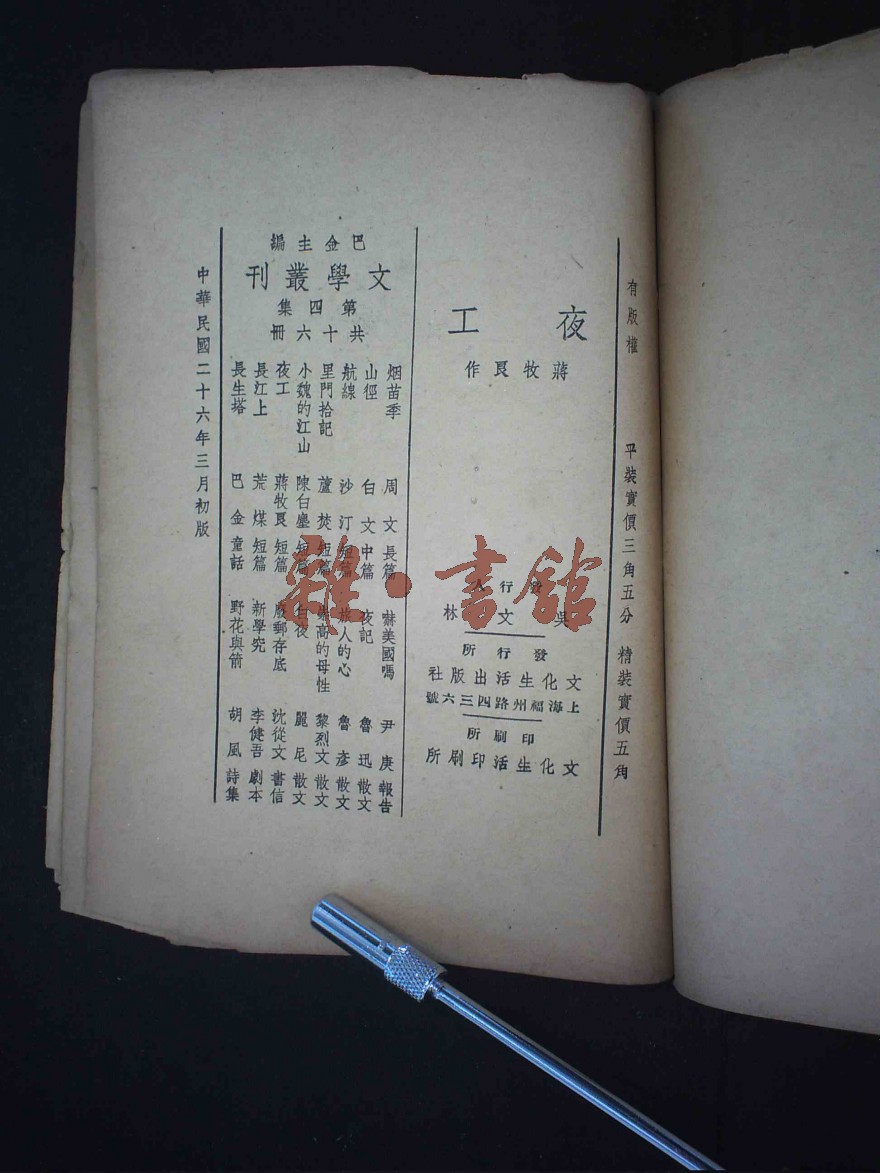 有版權　平裝實價三角五分　精裝實價五角
夜工
蔣牧良作
發行人
吳文林
發行所
文化生活出版社
上海福州路四三六號
印刷所
文化生活印刷所
巴金主編
文學叢刊
第四集
共十六冊
烟苗季　周文　長篇　嚇美國嗎　尹庚　報告
山徑　白文　中篇　夜記　魯迅　散文
航線　沙汀　短篇　旅人的心　魯彥　散文
里門拾記　蘆焚　短篇　崇高的母性　黎烈文　散文
小魏的江山　陳白塵　短篇　白夜　麗尼　散文
夜工　蔣牧良　短篇　廢郵存底　沈從文　書信
長江上　荒煤　短篇　新學究　李健吾　劇本
長生塔　巴金　童話　野花與箭　胡風　詩集
中華民國二十六年三月初版
雜·書館